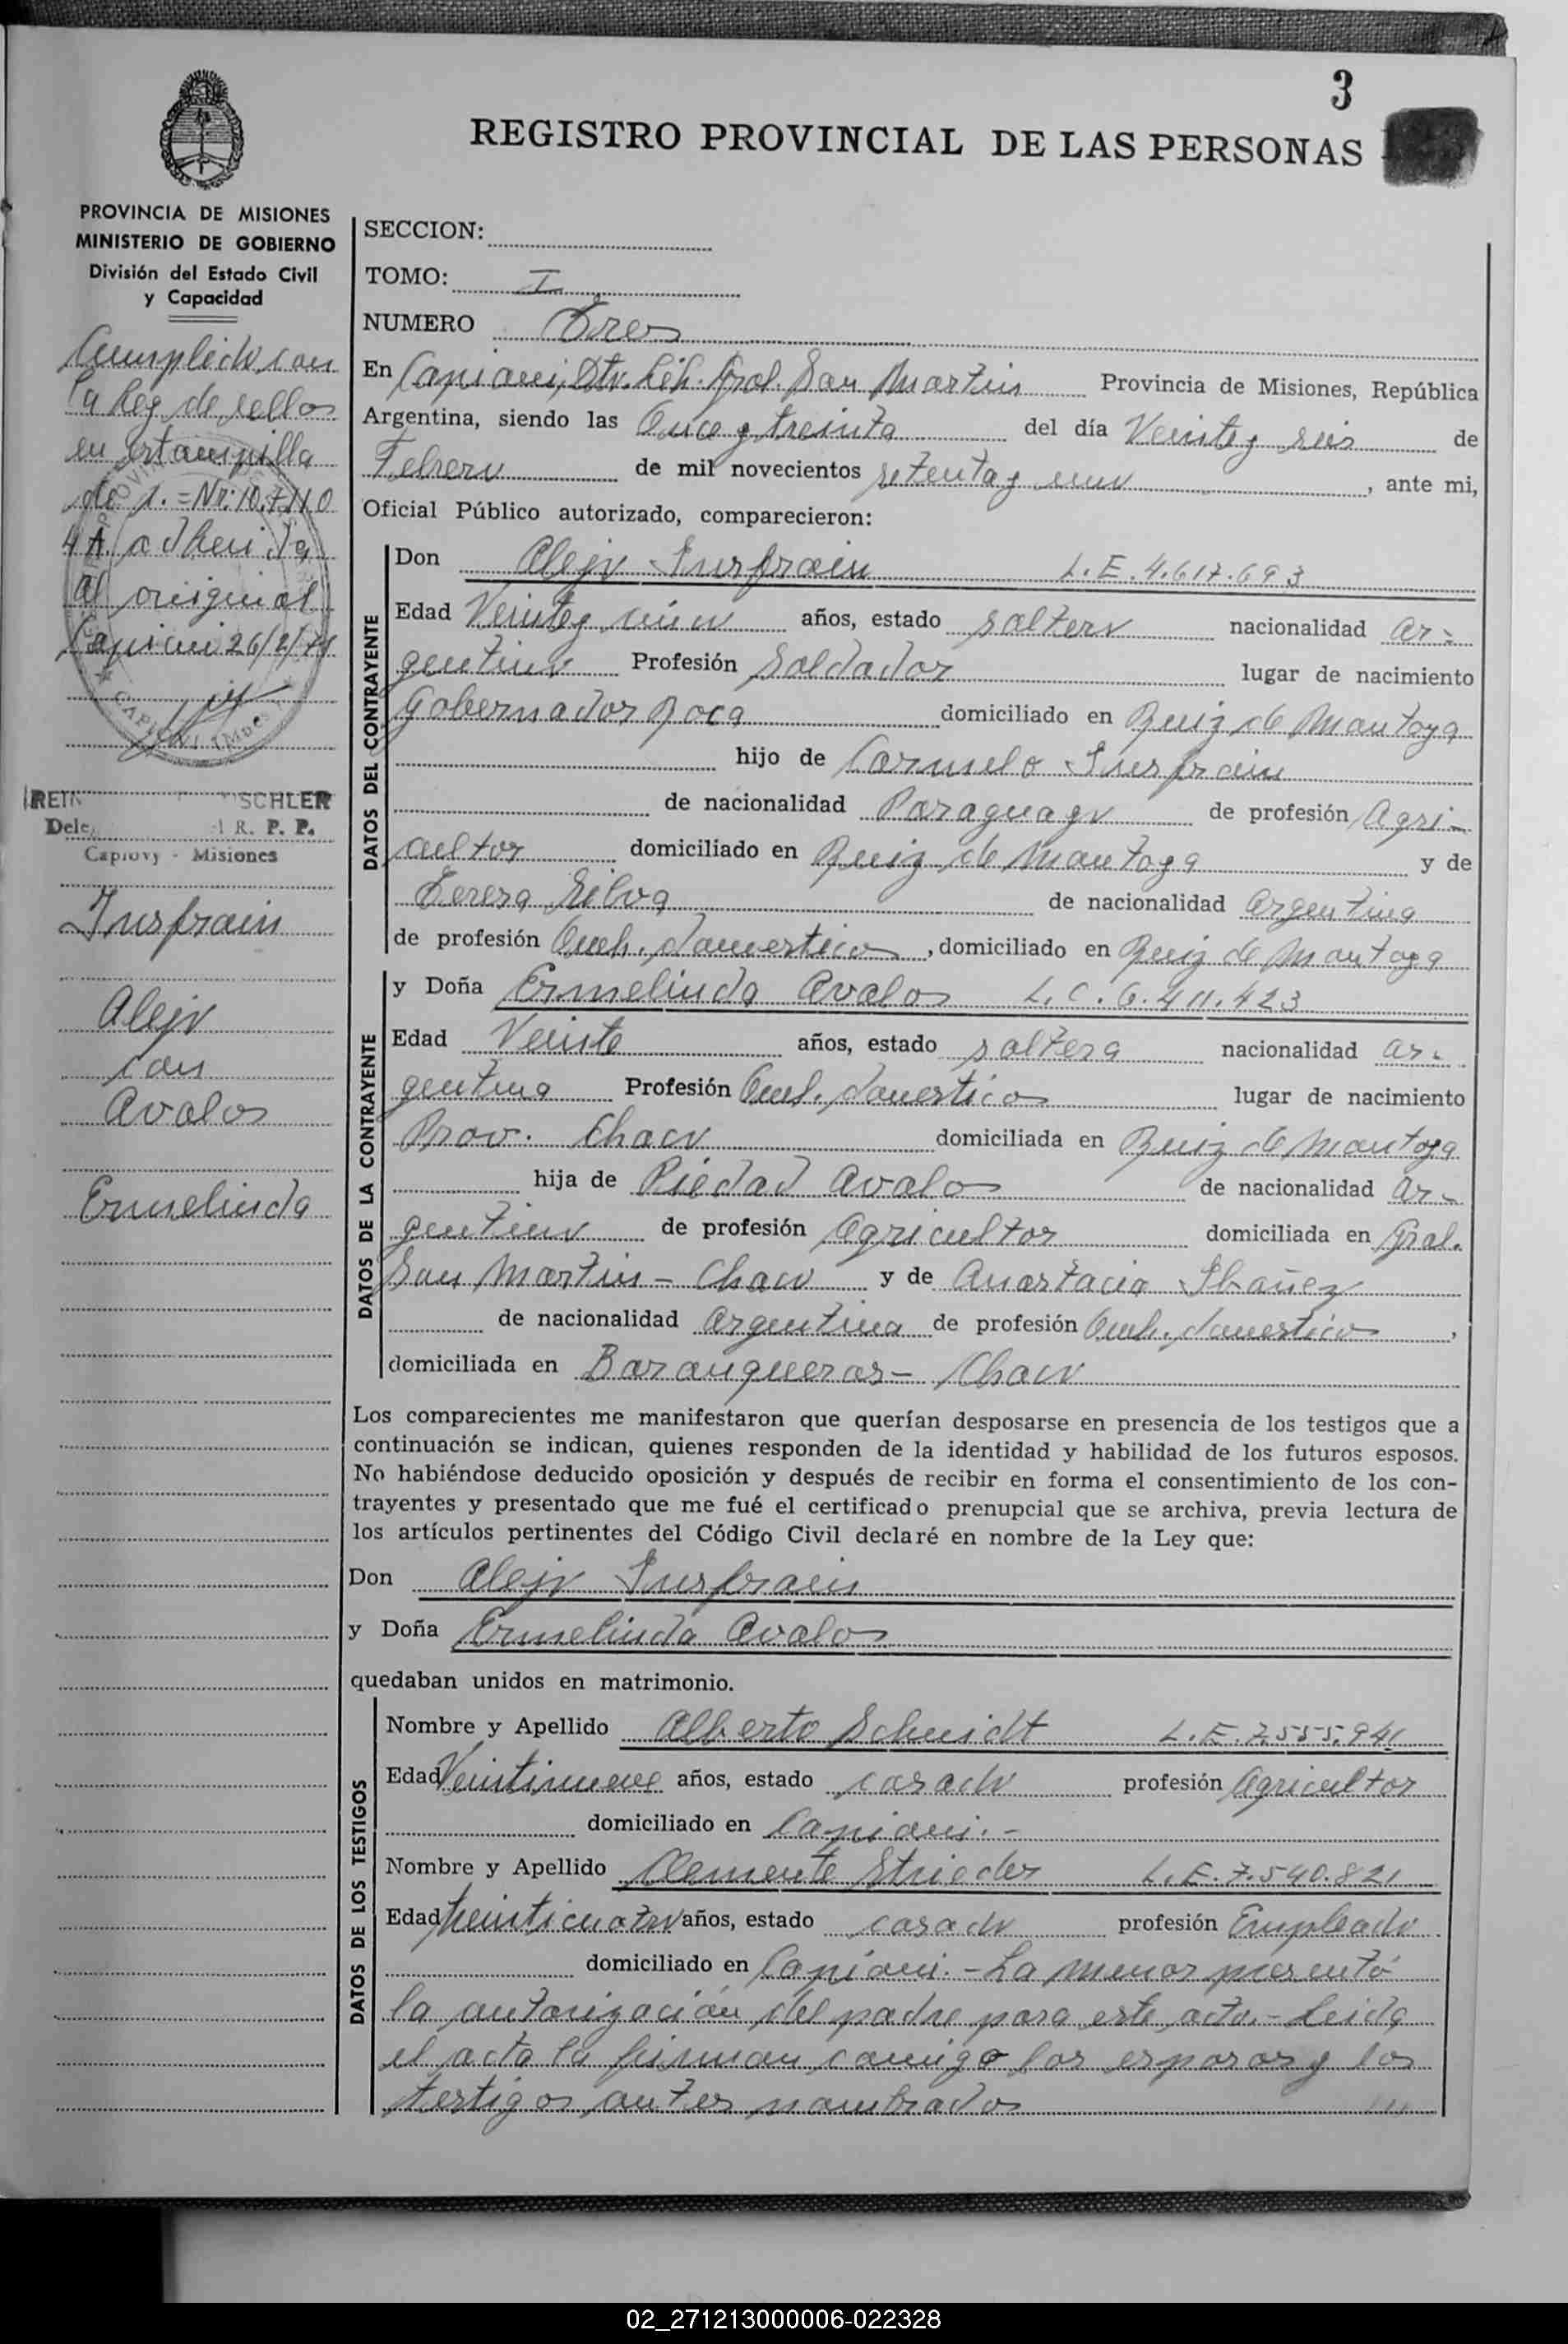 3
REGISTRO PROVINCIAL DE LAS PERSONAS
PROVINCIA DE MISIONES
MINISTERIO DE GOBIERNO
División del Estado Civil
y Capacidad
Cumplido con
la ley de sellos
en estampilla
de 1.=Nr: 10.7110
4 A. adherida
al original
Capiovi 26/2/71
SCHLER
Dele R. P. P.
Capiovy - Misiones
Insfrain
Alejo
con
Avalos
Ermelinda
SECCION:
TOMO: I
NUMERO Tres
En Capiovi, Dto. Lib. Gral. San Martin Provincia de Misiones, República
Argentina, siendo las Once y treinta del día Veinte y seis de
Febrero de mil novecientos setenta y uno, ante mi,
Oficial Público autorizado, comparecieron:
DATOS DEL CONTRAYENTE
Don Alejo Insfrain L.E. 4.617.693
Edad Veinte y años, estado soltero nacionalidad ar-
gentino Profesión Soldador lugar de nacimiento
Gobernador Roca domiciliado en Ruiz de Montoya
hijo de Carmelo Insfrain
de nacionalidad Paraguayo de profesión Agri-
cultor domiciliado en Ruiz de Montoya y de
Teresa Silva de nacionalidad Argentina
de profesión Queh. domesticos, domiciliado en Ruiz de Montoya
DATOS DE LA CONTRAYENTE
y Doña Ermelinda Avalos L.C. 6.411.423
Edad Veinte años, estado soltera nacionalidad ar-
gentina Profesión Queh. domesticos lugar de nacimiento
Prov. Chaco domiciliada en Ruiz de Montoya
hija de Piedad Avalos de nacionalidad ar-
gentino de profesión Agricultor domiciliada en Gral.
San Martin - Chaco y de Anastacia Ibañez
de nacionalidad Argentina de profesión Queh. domesticos,
domiciliada en Baranqueras - Chaco
Los comparecientes me manifestaron que querían desposarse en presencia de los testigos que a
continuación se indican, quienes responden de la identidad y habilidad de los futuros esposos.
No habiéndose deducido oposición y después de recibir en forma el consentimiento de los con-
trayentes y presentado que me fué el certificado prenupcial que se archiva, previa lectura de
los artículos pertinentes del Código Civil declaré en nombre de la Ley que:
Don Alejo Insfrain
y Doña Ermelinda Avalos
quedaban unidos en matrimonio.
DATOS DE LOS TESTIGOS
Nombre y Apellido Alberto Schmidt L.E. 7.555.941
Edad Veintinueve años, estado casado profesión Agricultor
domiciliado en Capiovi.-
Nombre y Apellido Clemente Strieder L.E. 7.540.821
Edad treinticuatro años, estado casado profesión Empleado
domiciliado en Capiovi.- La menor presentó
la autorización del padre para este acto.- Leida
el acta la firman conmigo los esposos y los
testigos antes nombrados
02_271213000006-022328